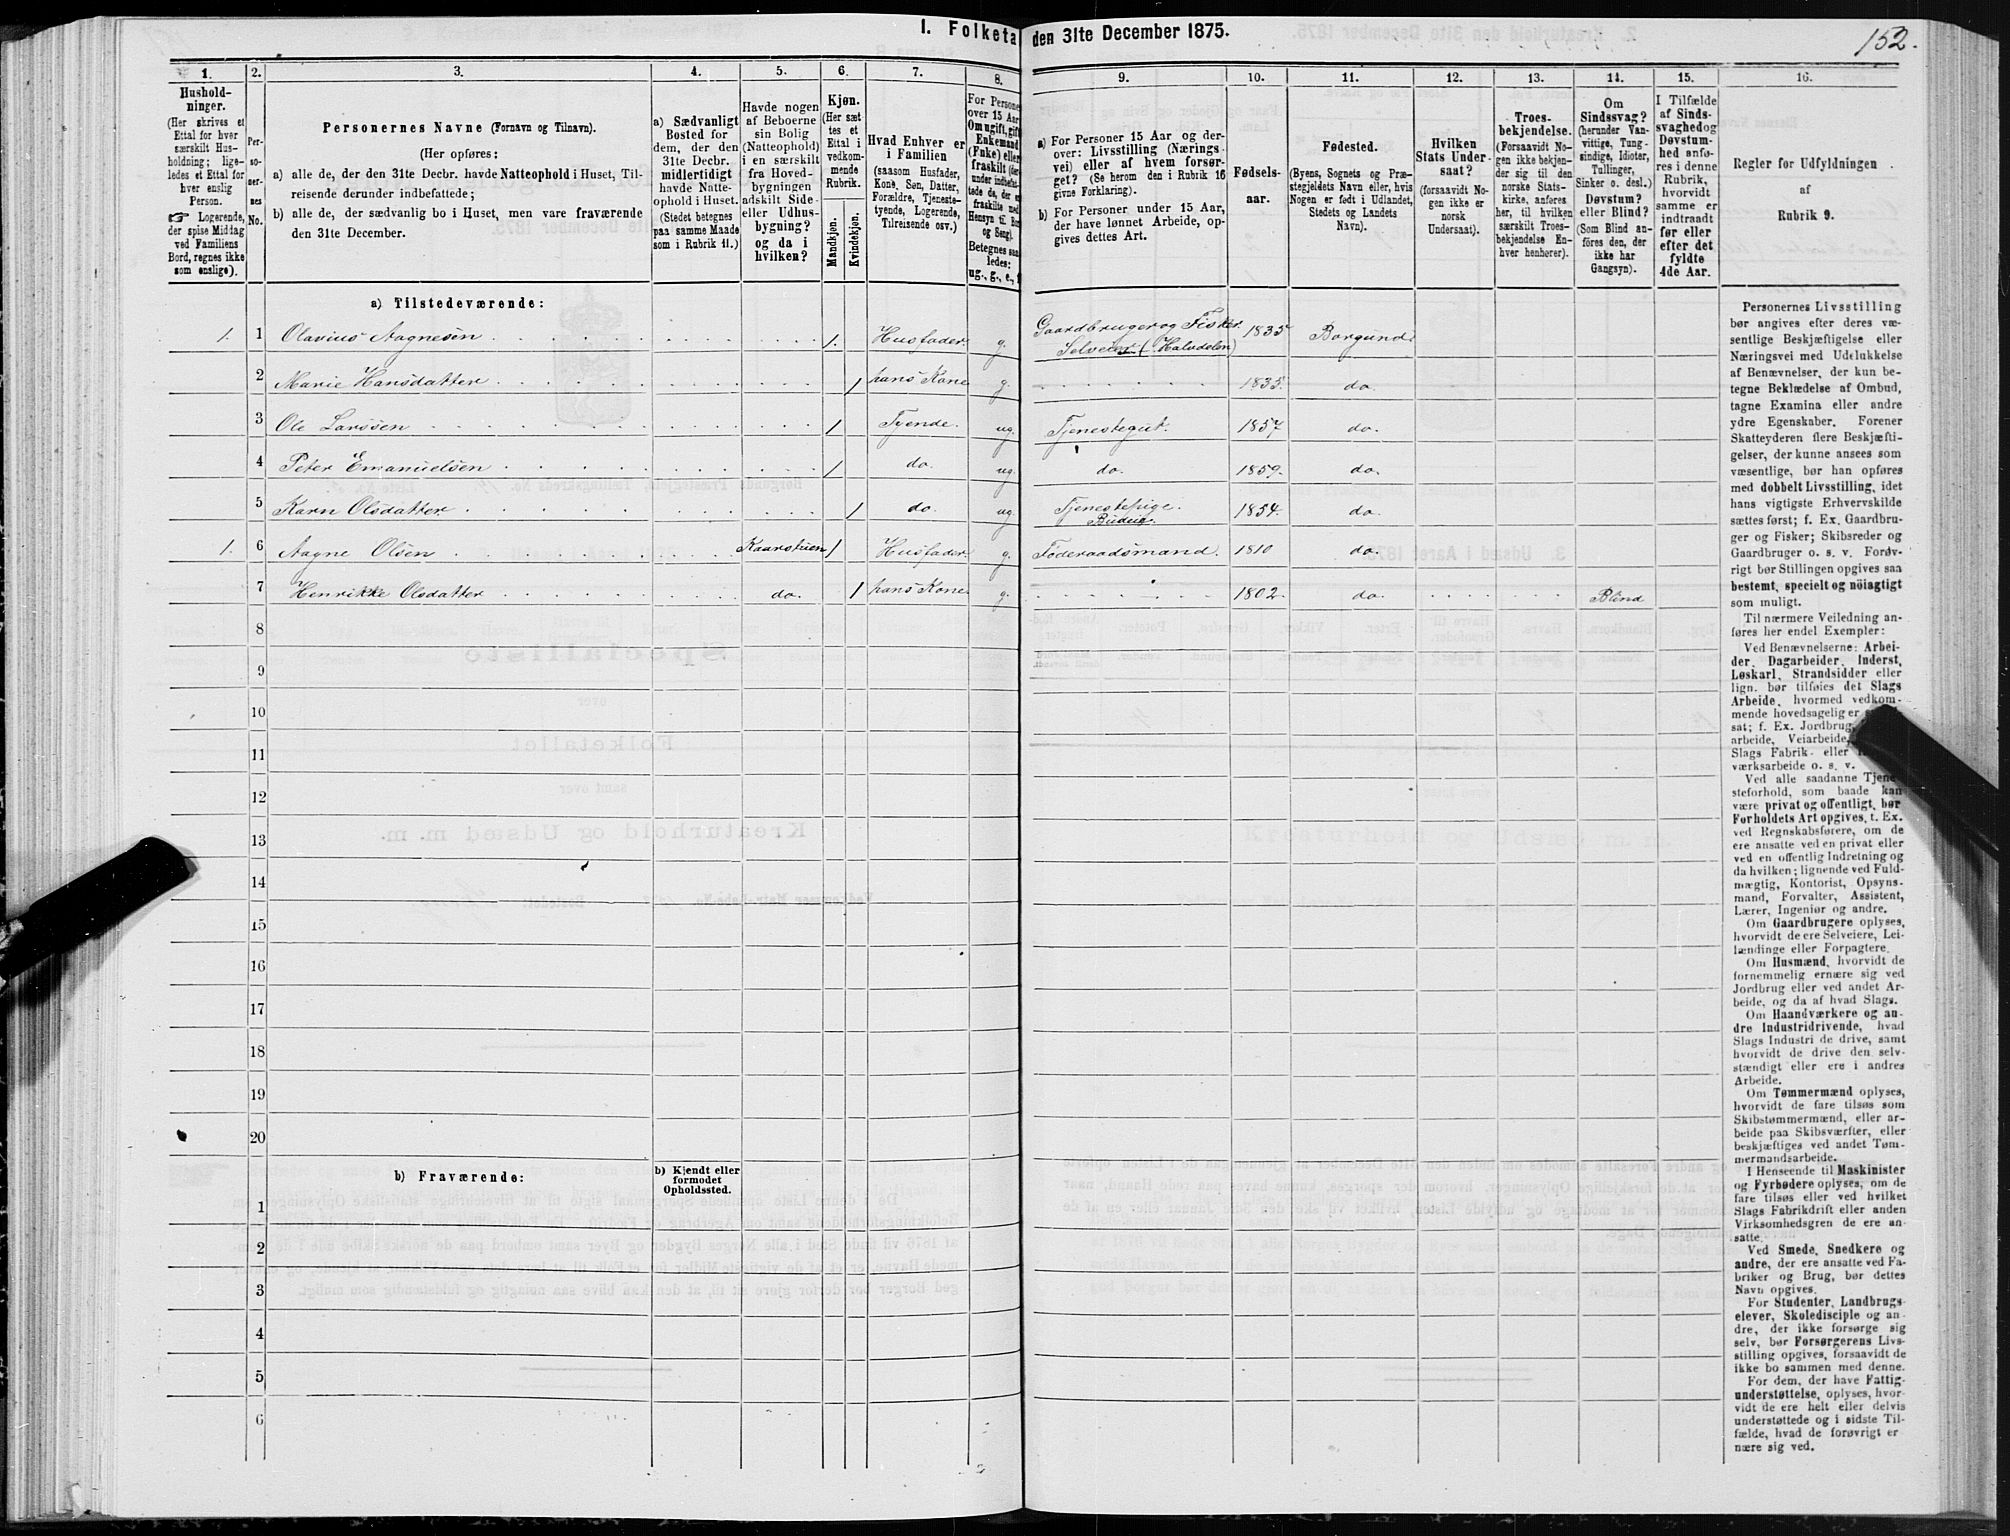 1. Folketa den 31te December 1875.
152.
1.
Hushold-
ninger.
(Her skrives et
Ettal for hver
særskilt Hus-
holdning; lige-
ledes et Ettal for
hver enslig
Person.
☞ Logerende,
der spise Middag
ved Familiens
Bord, regnes ikke
som enslige).
2.
Per-
so-
ner-
nes
No.
3.
Personernes Navne (Fornavn og Tilnavn).
(Her opføres:
a) alle de, der den 31te Decbr. havde Natteophold i Huset, Til-
reisende derunder indbefattede;
b) alle de, der sædvanlig bo i Huset, men vare fraværende
den 31te December.
4.
a) Sædvanligt
Bosted for
dem, der den
31te Decbr.
midlertidigt
havde Natte-
ophold i Huset.
(Stedet betegnes
paa samme Maade
som i Rubrik 11.)
5.
Havde nogen
af Beboerne
sin Bolig
(Natteophold)
i en særskilt
fra Hoved-
bygningen
adskilt Side-
eller Udhus-
bygning?
og da i
hvilken?
6.
Kjøn.
(Her sæt-
tes et
Ettal i
vedkom-
mende
Rubrik.
Mandkjøn.
Kvindekjøn.
7.
Hvad Enhver er
i Familien
(saasom Husfader,
Kone, Søn, Datter,
Forældre, Tjeneste-
tyende, Logerende,
Tilreisende osv.)
8.
For Persone
over 15 Aar
Om ugift, gift
Enkemand
(Enke) eller
fraskilt (der-
under indbefat-
tede de, der er
fraskilte med
Hensyn til Bord
og Seng).
Betegnes saa-
ledes:
ug., g., e., f.
9.
a) For Personer 15 Aar og der-
over: Livsstilling (Nærings-
vei) eller af hvem forsør-
get? (Se herom den i Rubrik 16
givne Forklaring).
b) For Personer under 15 Aar,
der have lønnet Arbeide, op-
gives dettes Art.
10.
Fødsels-
aar.
11.
Fødested.
(Byens, Sognets og Præ-
stegjeldets Navn eller, hvis
Nogen er født i Udlandet,
Stedets og Landets
Navn).
12.
Hvilken
Stats Under-
saat?
(forsaavidt No-
gen ikke er
norsk
Undersaat).
13.
Troes-
bekjendelse.
(Forsaavidt No-
gen ikke bekjen-
der sig til den
norske Stats-
kirke, anføres
her, til hvilken
særskilt Troes-
bekjendelse En-
hver henhører).
14.
Om
Sindssvag?
(herunder Van-
vittige, Tung-
sindige, Idioter,
Tullinger,
Sinker o. desl.)
Døvstum?
eller Blind?
(Som Blind an-
føres den, der
ikke har
Gangsyn).
15.
I Tilfælde
af Sinds-
svaghed og
Døvstum-
hed anfø-
res i denne
Rubrik,
hvorvidt
samme er
indtraadt
før eller
efter det
fyldte
4de Aar.
16.
Regler for Udfyldningen
af
Rubrik 9.
a) Tilstedeværende:
1. 1 Olavius Aagnesen 1. Husfader g. Gaardbruger og Fisker. Selveier (Halvdelen) 1835 Borgund
2 Marie Hansdatter 1 hans Kone g. 1835. do.
3 Ole Larssen 1 Tyende. ug. Tjenestegut. 1857 do.
4 Peter Emanuelsen 1 do. ug. do. 1859. do.
5 Karn Olsdatter 1 do. ug. Tjenestepige. Budeie. 1854. do.
1. 6 Aagne Olsen Kaarstuen 1 Husfader g. Föderaadsmand. 1810 do.
7 Henrikke Olsdatter do. 1 hans Kone g. 1802. do. Blind
8
9
10
11
12
13
14
15
16
17
18
19
20
b) Fraværende:
b) Kjendt eller
formodet
Opholdssted.
1
2
3
4
5
6
Personernes Livsstilling
bør angives efter deres væ-
sentlige Beskjæftigelse eller
Næringsvei med Udelukkelse
af Benævnelser, der kun be-
tegne Beklædelse af Ombud,
tagne Examina eller andre
ydre Egenskaber. Forener
Skatteyderen flere Beskjæfti-
gelser, der kunne ansees som
væsentlige, bør han opføres
med dobbelt Livsstilling, idet
hans vigtigste Erhvervskilde
sættes først; f. Ex. Gaardbru-
ger og Fisker; Skibsreder og
Gaardbruger o. s. v. Forøv-
rigt bør Stillingen opgives saa
bestemt, specielt og nöiagtigt
som muligt.
Til nærmere Veiledning an-
føres her endel Exempler:
Ved Benævnelserne: Arbei-
der, Dagarbeider, Inderst,
Løskarl, Strandsidder eller
lign. bør tilføies det Slags
Arbeide, hvormed vedkom-
mende hovedsagelig er
sat; f. Ex. Jordbrug,
arbeide, Veiarbeide,
Slags Fabrik- eller
værksarbeide o. s. v.
Ved alle saadanne Tjene-
steforhold, som baade kan
være privat og offentligt, bør
Forholdets Art opgives, t. Ex.
ved Regnskabsførere, om de
ere ansatte ved en privat eller
ved en offentlig Indretning og
da hvilken; lignende ved Fuld-
mægtig, Kontorist, Opsyns-
mand, Forvalter, Assistent,
Lærer, Ingeniør og andre.
Om Gaardbrugere oplyses,
hvorvidt de ere Selveiere, Lei-
lændinge eller Forpagtere.
Om Husmænd, hvorvidt de
fornemmelig ernære sig ved
Jordbrug eller ved andet Ar-
beide, og da af hvad Slags.
Om Haandværkere og an-
dre Industridrivende, hvad
Slags Industri de drive, samt
hvorvidt de drive den selv-
stændigt eller ere i andres
Arbeide.
Om Tømmermænd oplyses,
hvorvidt de fare tilsøs som
Skibstømmermænd, eller ar-
beide paa Skibsværfter, eller
beskjæftiges ved andet Tøm-
mermandsarbeide.
I Henseende til Maskinister
og Fyrbødere oplyses, om de
fare tilsøs eller ved hvilket
Slags Fabrikdrift eller anden
Virksomhedsgren de ere an-
satte.
Ved Smede, Snedkere og
andre, der ere ansatte ved Fa-
briker og Brug, bør dettes
Navn opgives.
For Studenter, Landbrugs-
elever, Skoledisciple og an-
dre, der ikke forsørge sig
selv, bør Forsørgerens Livs-
stilling opgives, forsaavidt de
ikke bo sammen med denne.
For dem, der have Fattig-
understøttelse, oplyses, hvor-
vidt de ere helt eller delvis
understøttede og i sidste Til-
fælde, hvad de forøvrigt er-
nære sig ved.